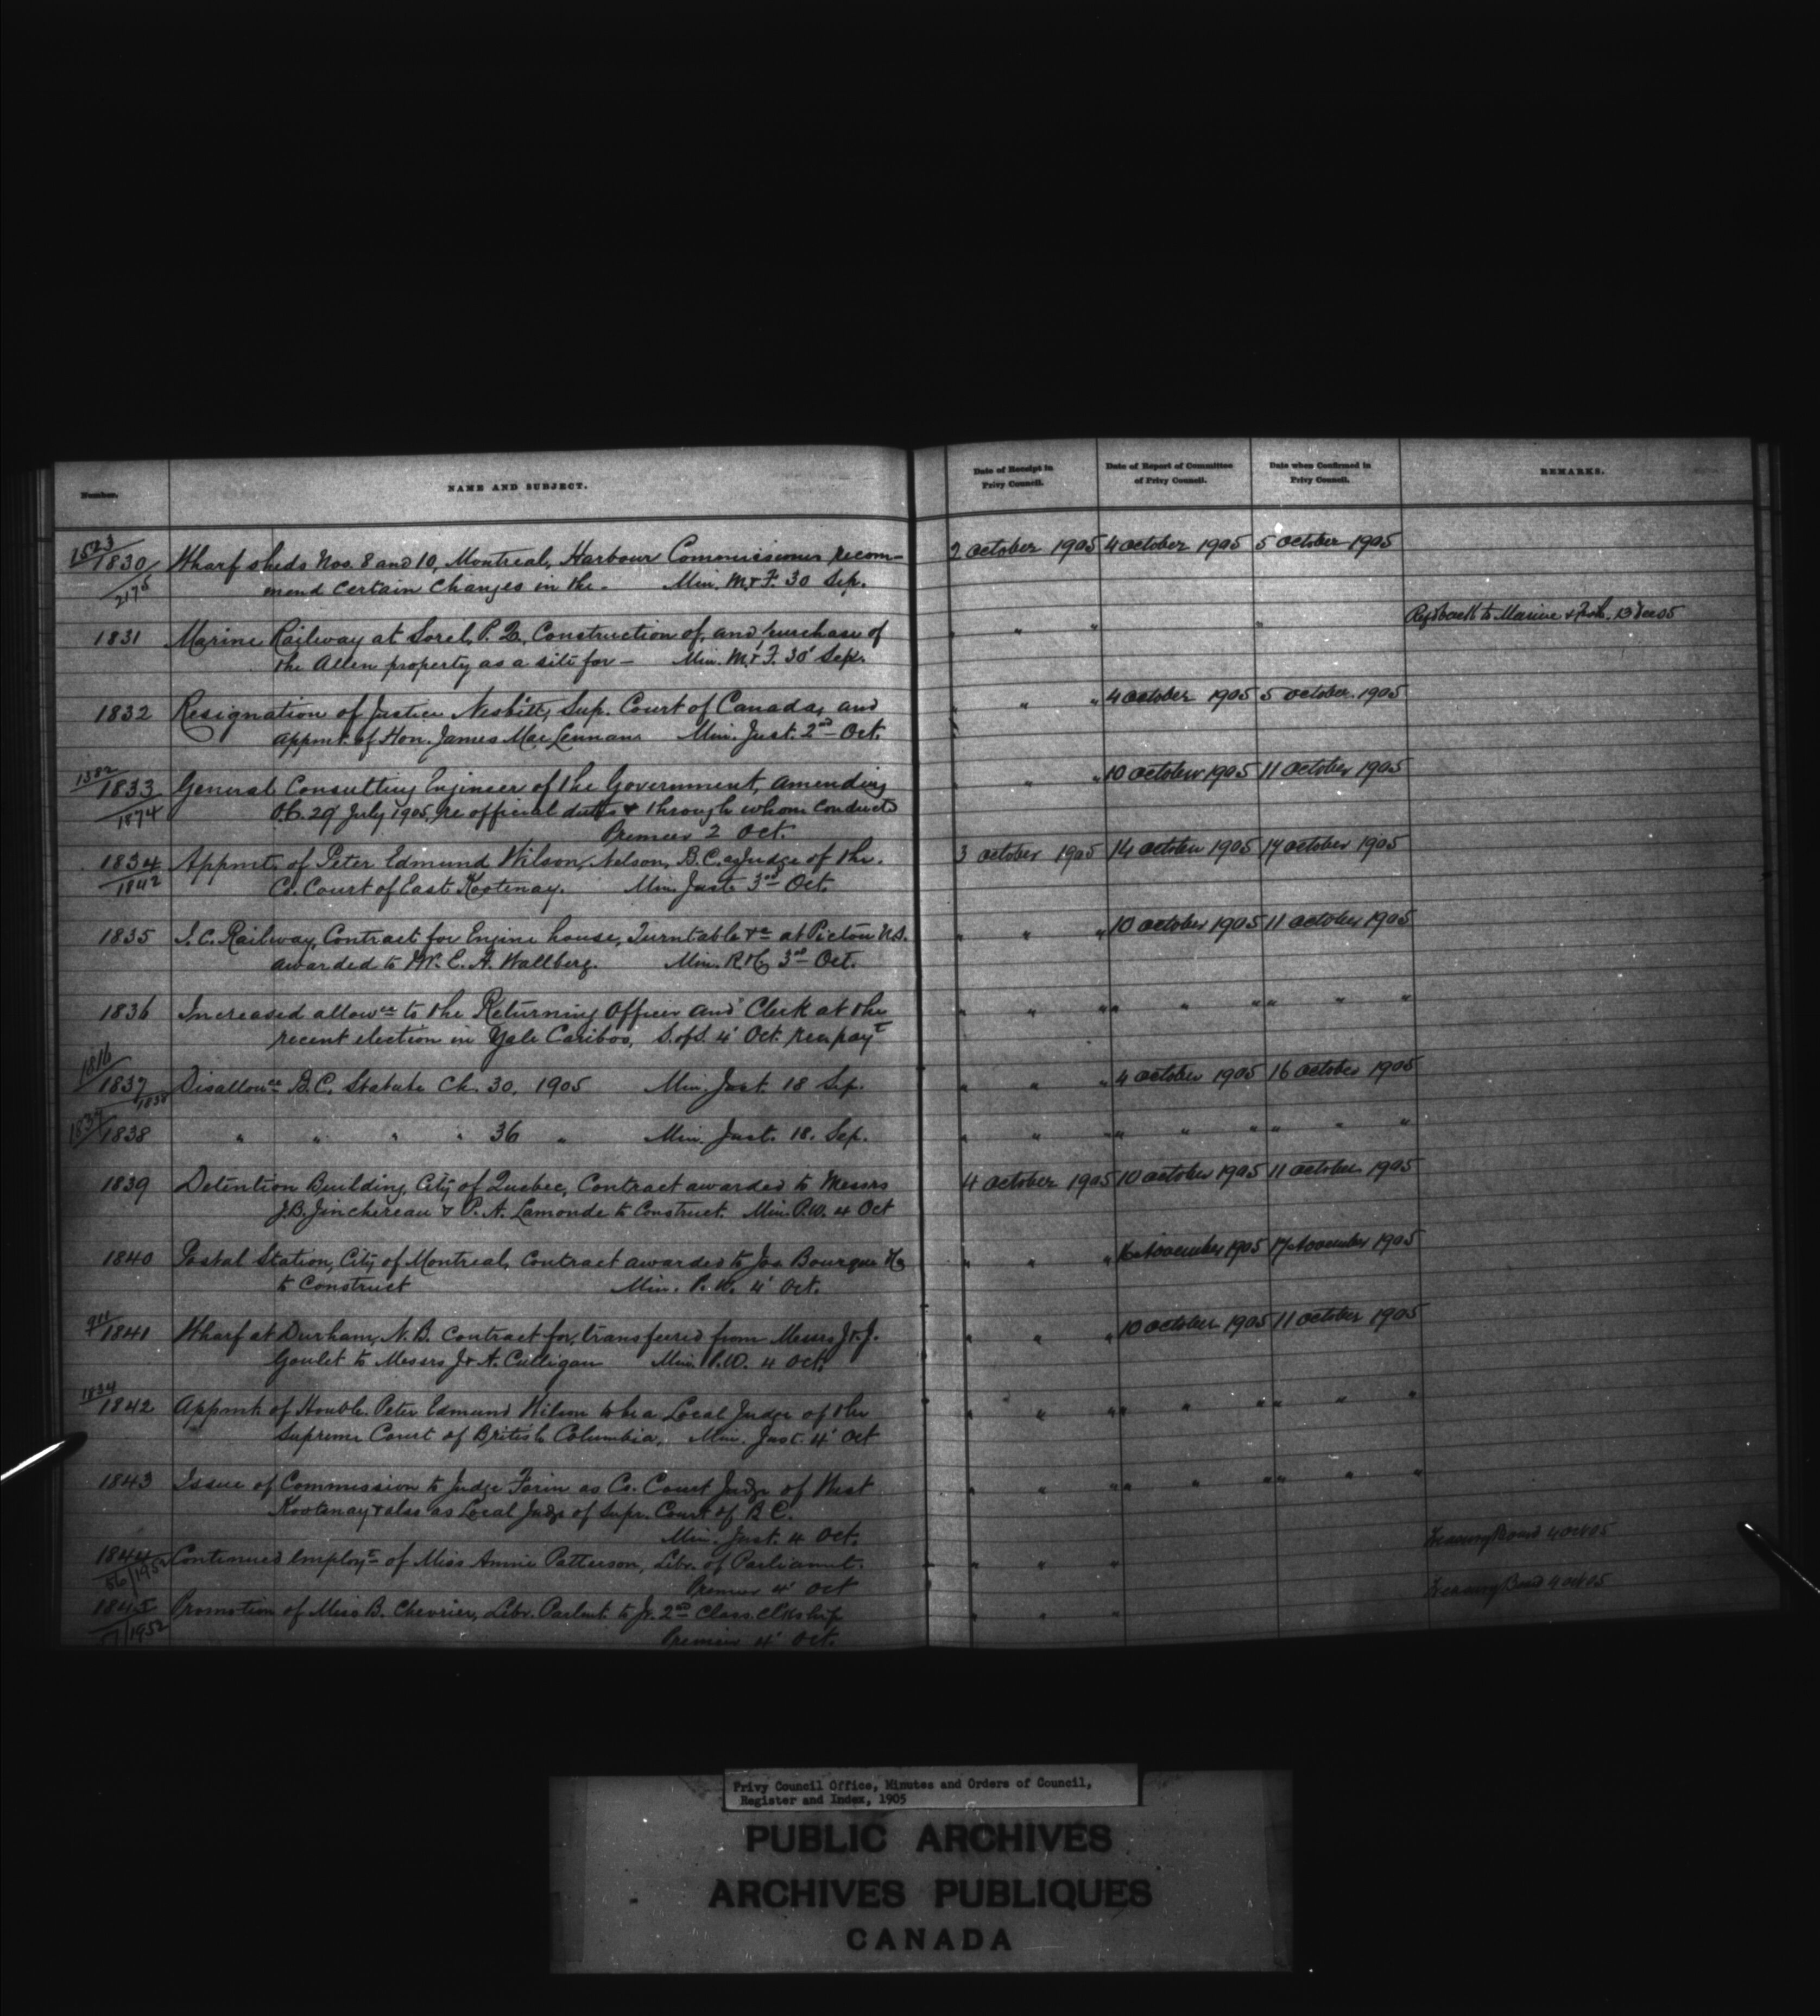 Number.
NAME AND SUBJECT.
Date of Receipt in Privy Council.
Date of Report of Committee of Privy Council.
Date when Confirmed in Privy Council.
REMARKS.
1523/1830/2175 Wharf sheds Nos. 8 and 10, Montreal, Harbour Commissioners recom- 2 October 1905 4 October 1905 5 October 1905
mend certain changes in the - Min. M. & F. 30 Sep.
1831 Marine Railway at Sorel, P.Q. Construction of, and purchase of " " " " " Refd back to Marine & Fish. 13 Dec 05
the Allen property as a site for - Min. M. & F. 30' Sep.
1832 Resignation of Justice Nesbitt, Sup. Court of Canada, and " " " 4 October 1905 5 October 1905
appmt. of Hon. James MacLennan Min. Just. 2nd Oct.
1582/1833/1874 General Consulting Engineer of the Government, amending " " " 10 October 1905 11 October 1905
O.C. 29' July 1905, re official duties & through whom conducted
Premier 2 Oct.
1834/1842 Appmt. of Peter Edmund Wilson, Nelson, B.C. as Judge of the 3 October 1905 14 October 1905 14 October 1905
Co. Court of East Kootenay. Min. Just. 3rd Oct.
1835 I.C. Railway, Contract for Engine house, Turntable &c at Pictou N.S. " " " 10 October 1905 11 October 1905
awarded to Mr. E. A. Wallberg. Min. R & C 3rd Oct.
1836 Increased allowce to the Returning Officer and Clerk at the " " " " " " " " "
recent election in Yale Cariboo, S. of S. 4' Oct. re repayt
1816/1837/1838 Disallowce B.C. Statute Ch. 30, 1905 Min. Just. 18 Sep. " " " 4 October 1905 16 October 1905
1837/1838 " " " " 36 " Min. Just. 18. Sep. " " " " " " " "
1839 Detention Building, City of Quebec, Contract awarded to Messrs 4 October 1905 10 October 1905 11 October 1905
J.B. Jinchereau & P. A. Lamonde to Construct. Min. P.W. 4 Oct
1840 Postal Station, City of Montreal, Contract awarded to Jos. Bourque " " " 16 November 1905 17 November 1905
to Construct Min. P.W. 4' Oct.
1841 Wharf at Durham, N.B. Contract for, transferred from Messrs J. & J. " " " 10 October 1905 11 October 1905
Goulet to Messrs J & A. Culligan Min. P.W. 4 Oct.
1834/1842 Appmt. of Honble. Peter Edmund Wilson to be a Local Judge of the " " " " " " " "
Supreme Court of British Columbia, Min. Just. 4' Oct
1843 Issue of Commission to Judge Forin as Co. Court Judge of West " " " " " " " "
Kootenay & also as Local Judge of Supr. Court of B.C.
Min. Just. 4 Oct.
1844 Continued employt of Miss Annie Patterson, Libr. of Parliamt. " " " Treasury Board 4 Oct 05
56/1952 Premier 4' Oct
1845 Promotion of Miss B. Chevrier, Libr. Parlmt. to Jr. 2nd Class Clkship " " " Treasury Board 4 Oct 05
/1952 Premier 4' Oct.
Privy Council Office, Minutes and Orders of Council,
Register and Index, 1905
PUBLIC ARCHIVES
ARCHIVES PUBLIQUES
CANADA